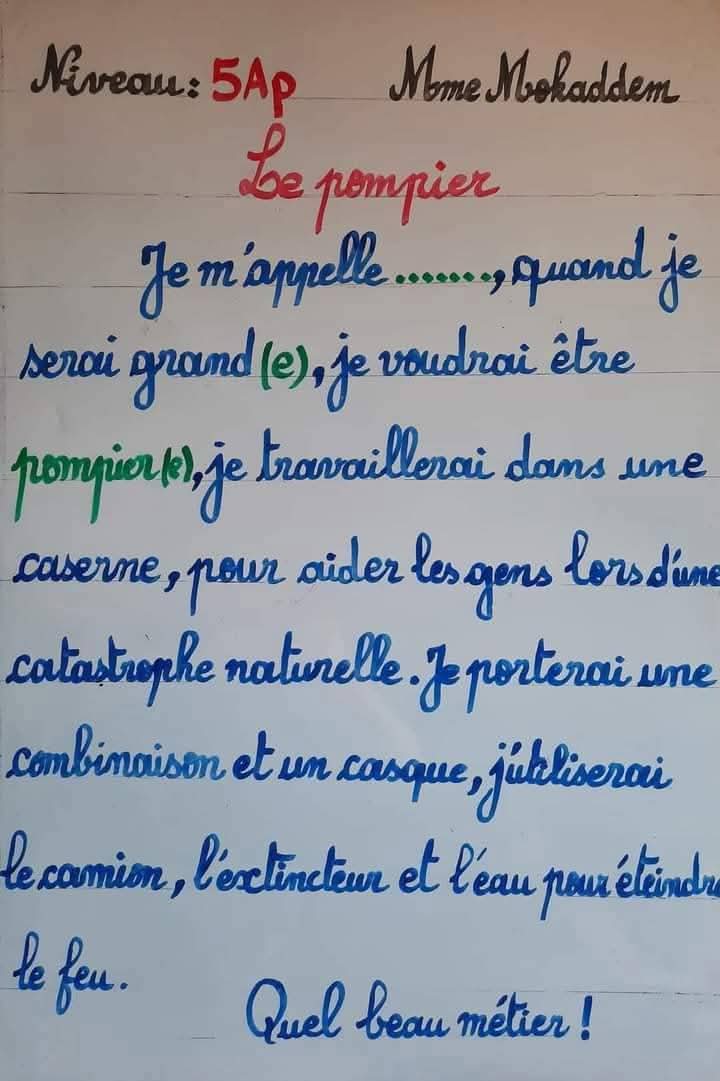 Niveau: 5Ap Mme Mokaddem
Le pompier
Je m'appelle ......., quand je
serai grand(e), je voudrai être
pompier(e), je travaillerai dans une
caserne, pour aider les gens lors d'une
catastrophe naturelle. Je porterai une
combinaison et un casque, j'utiliserai
le camion, l'extincteur et l'eau pour éteindr
le feu.
Quel beau métier !